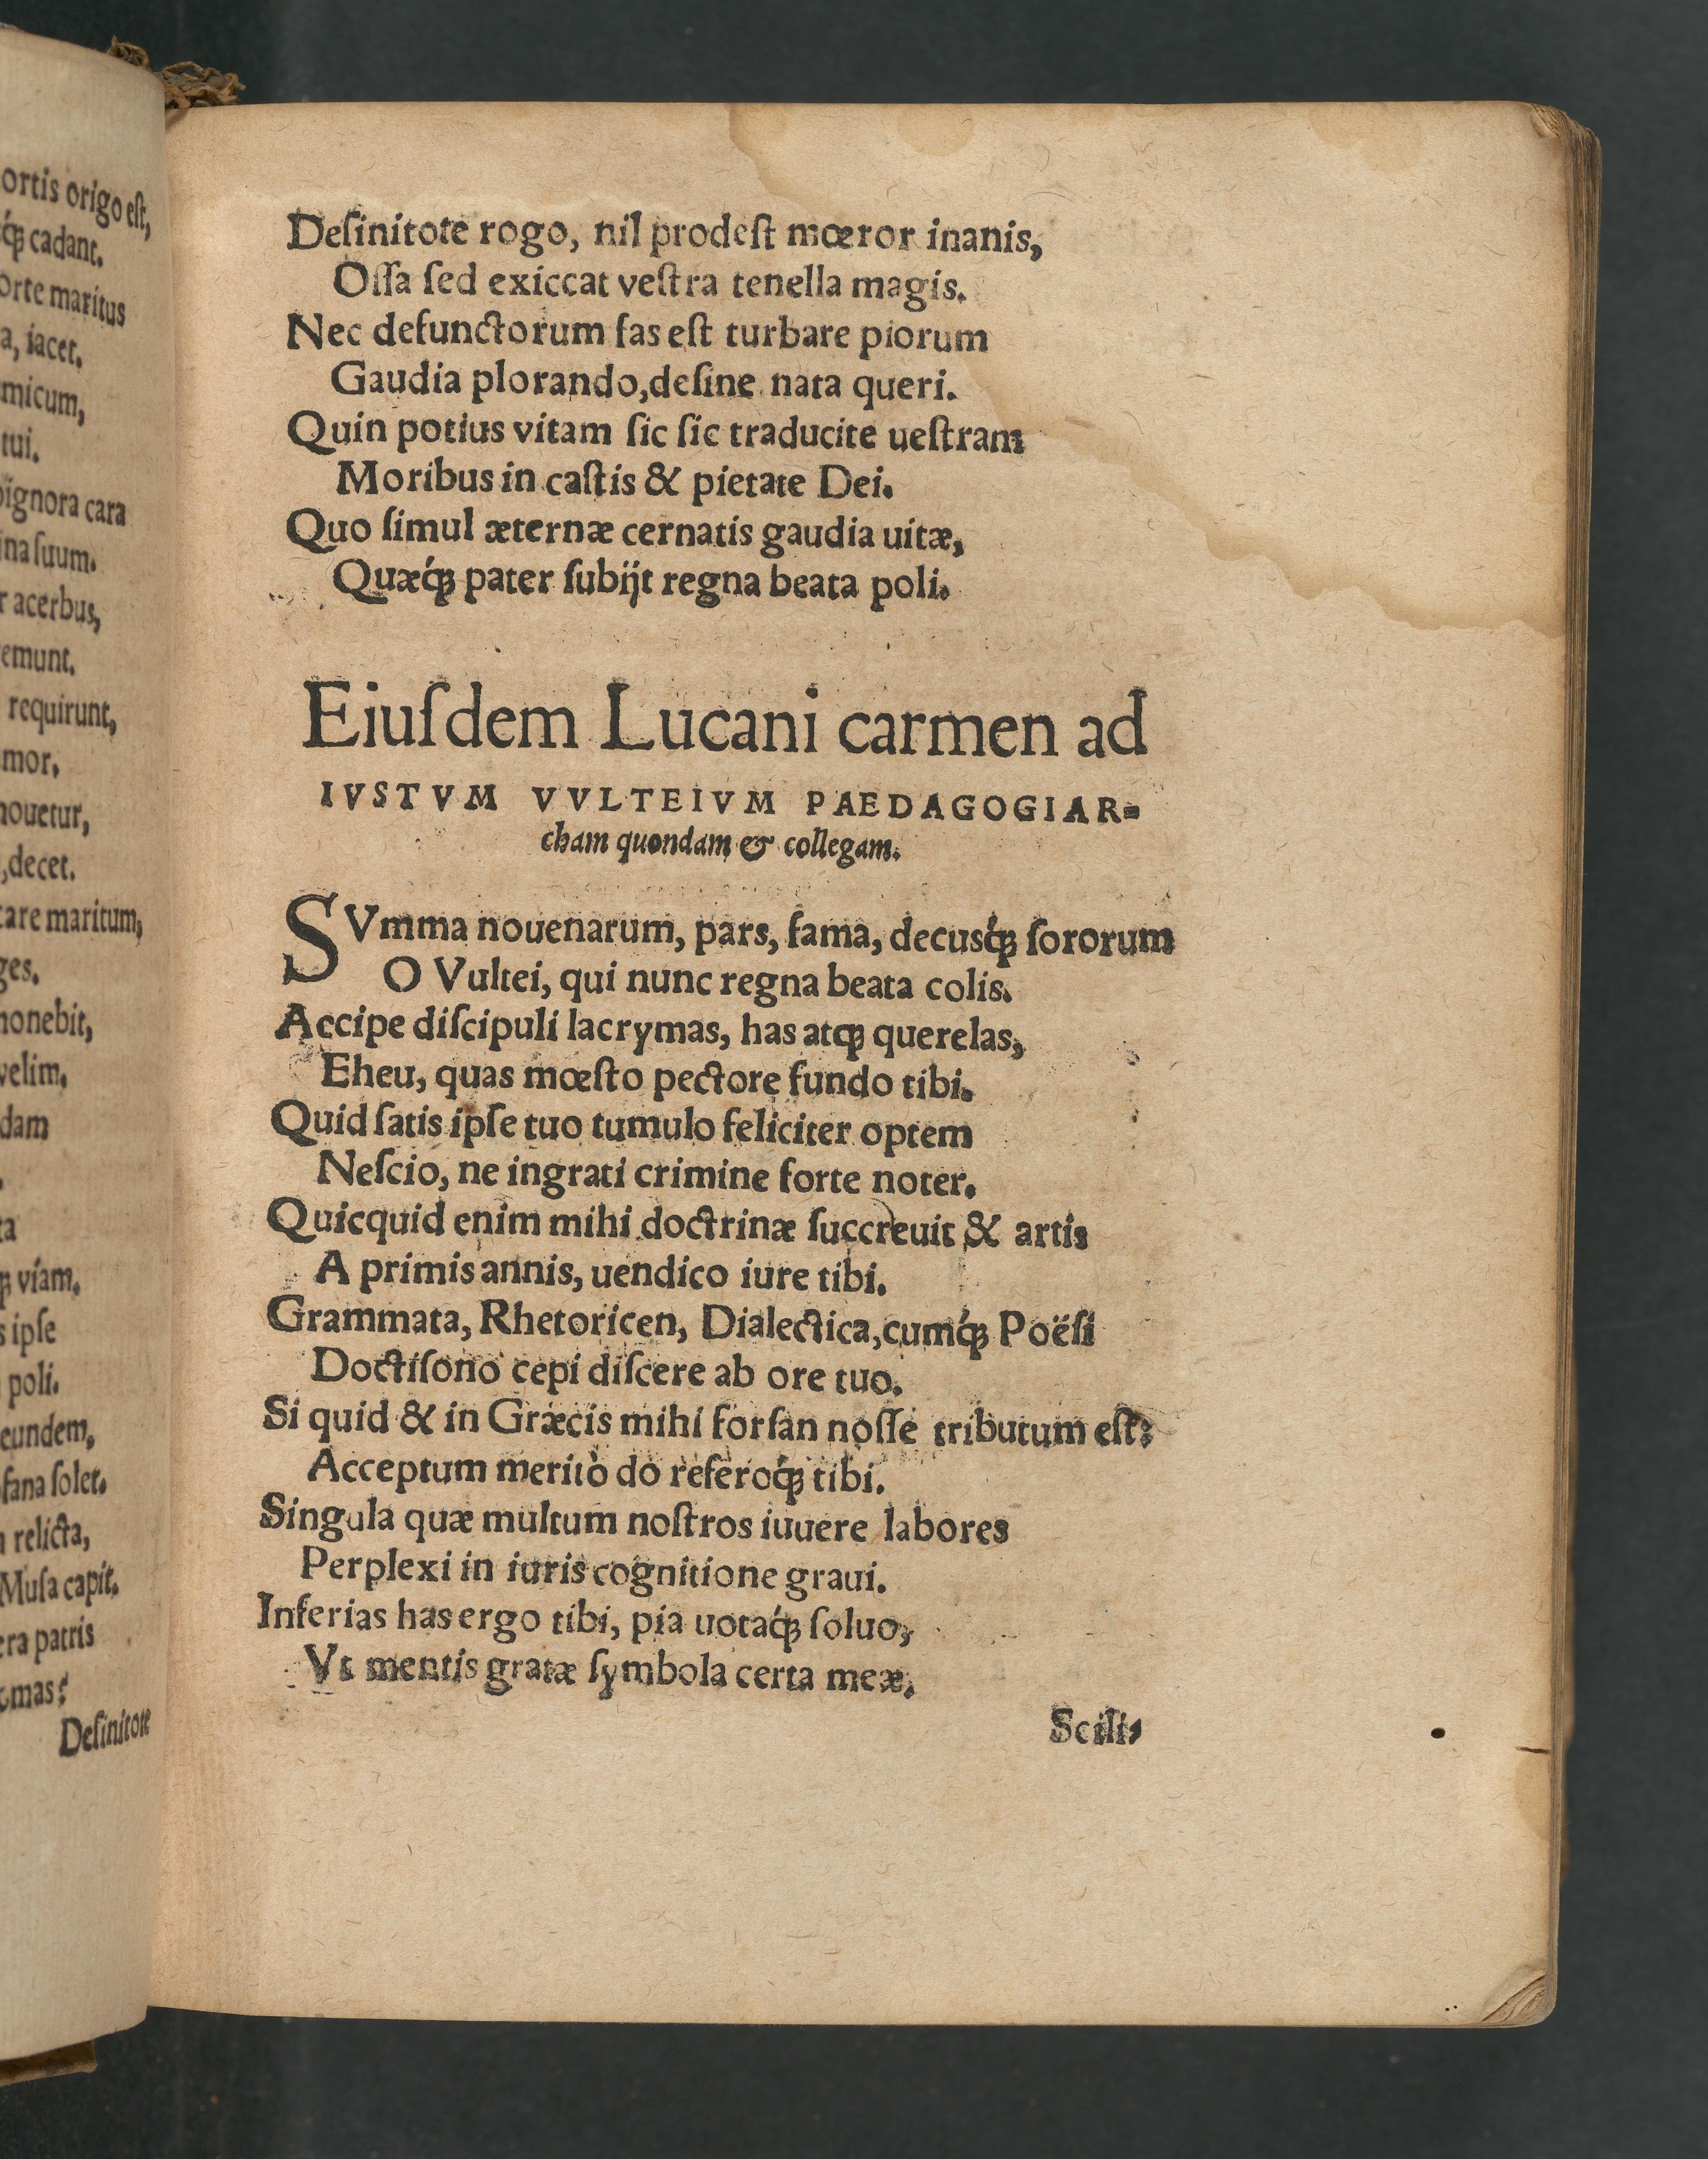 ortis origo eſt,
q́ꝫ cadant.
orte maritus
a, iacet.
micum,
tui.
pignora cara
ina ſuum.
r acerbus,
emunt.
requirunt,
mor,
nouetur,
, decet.
tare maritum,
ges.
nonebit,
velim.
dam
ta
ꝗꝫ viam.
s ipſe
poli.
eundem,
fana ſolet.
relicta,
Muſa capit.
era patris
omas?
Deſinitote
Deſinitote rogo, nil prodeſt mœror inanis,
Oſſa ſed exiccat veſtra tenella magis.
Nec defunctorum fas eſt turbare piorum
Gaudia plorando, deſine nata queri.
Quin potius vitam ſic ſic traducite ueſtram
Moribus in caſtis & pietate Dei.
Quo ſimul æternæ cernatis gaudia uitæ,
Quæq́ꝫ pater ſubijt regna beata poli.
Eiuſdem Lucani carmen ad
IVSTVM VVLTEIVM PAEDAGOGIAR=
cham quondam & collegam.
SVmma nouenarum, pars, fama, decusq́ꝫ ſororum
O Vultei, qui nunc regna beata colis.
Accipe diſcipuli lacrymas, has atqꝫ querelas,
Eheu, quas mœſto pectore fundo tibi.
Quid ſatis ipſe tuo tumulo feliciter optem
Neſcio, ne ingrati crimine forte noter.
Quicquid enim mihi doctrinæ ſuccreuit & artis
A primis annis, uendico iure tibi.
Grammata, Rhetoricen, Dialectica, cumq́ꝫ Poëſi
Doctiſono cepi diſcere ab ore tuo.
Si quid & in Græcis mihi forſan noſſe tributum eſt:
Acceptum meritò do referoq́ꝫ tibi.
Singula quæ multum noſtros iuuere labores
Perplexi in iuris cognitione graui.
Inferias has ergo tibi, pia uotaq́ꝫ ſoluo,
Vt mentis gratæ ſymbola certa meæ.
Scili-